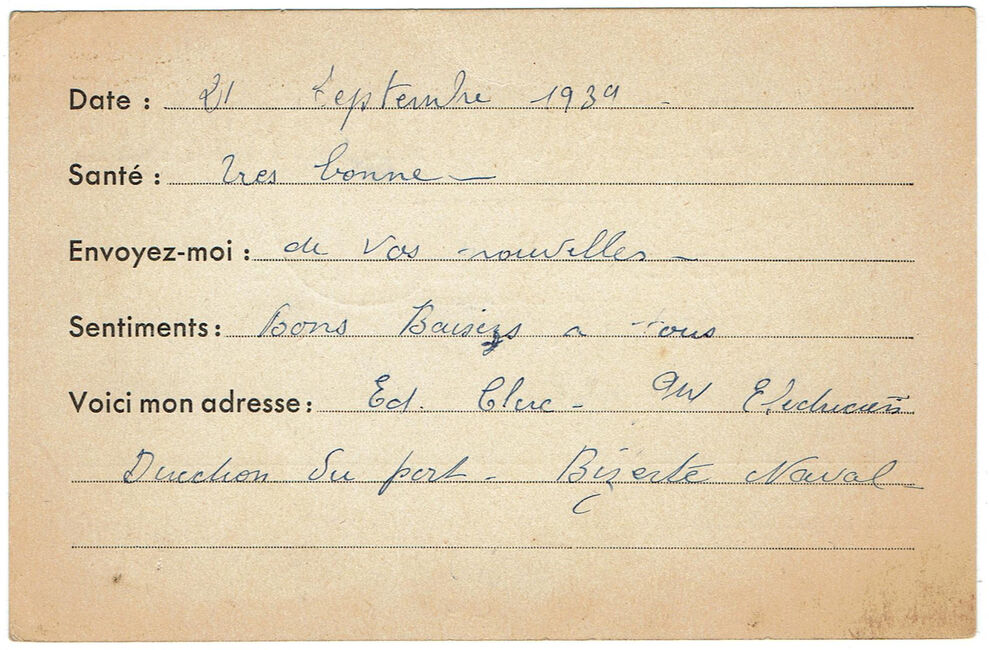 Date : 21 Septembre 1939 -
Santé : tres bonne -
Envoyez-moi : de Vos nouvelles -
Sentiments : Bons Baisers a tous
Voici mon adresse : Ed. Clerc - QM Electricien
Direction du port - Bizerte Naval -